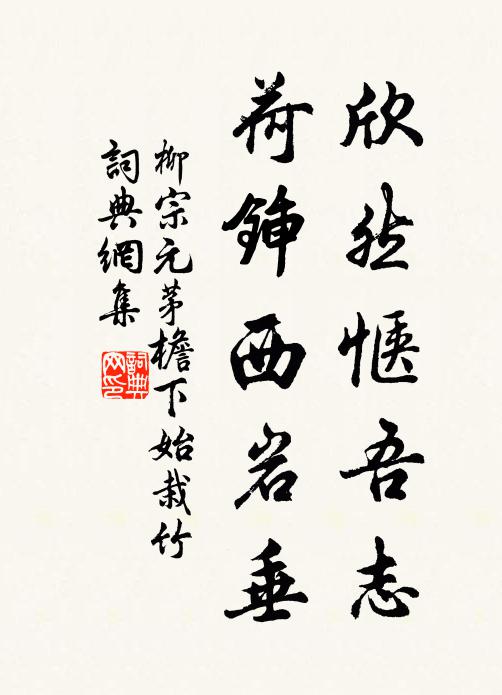 欣然惬吾志
荷鍤西岩垂
柳宗元茅檐下始栽竹
詞典網集
詞典网印